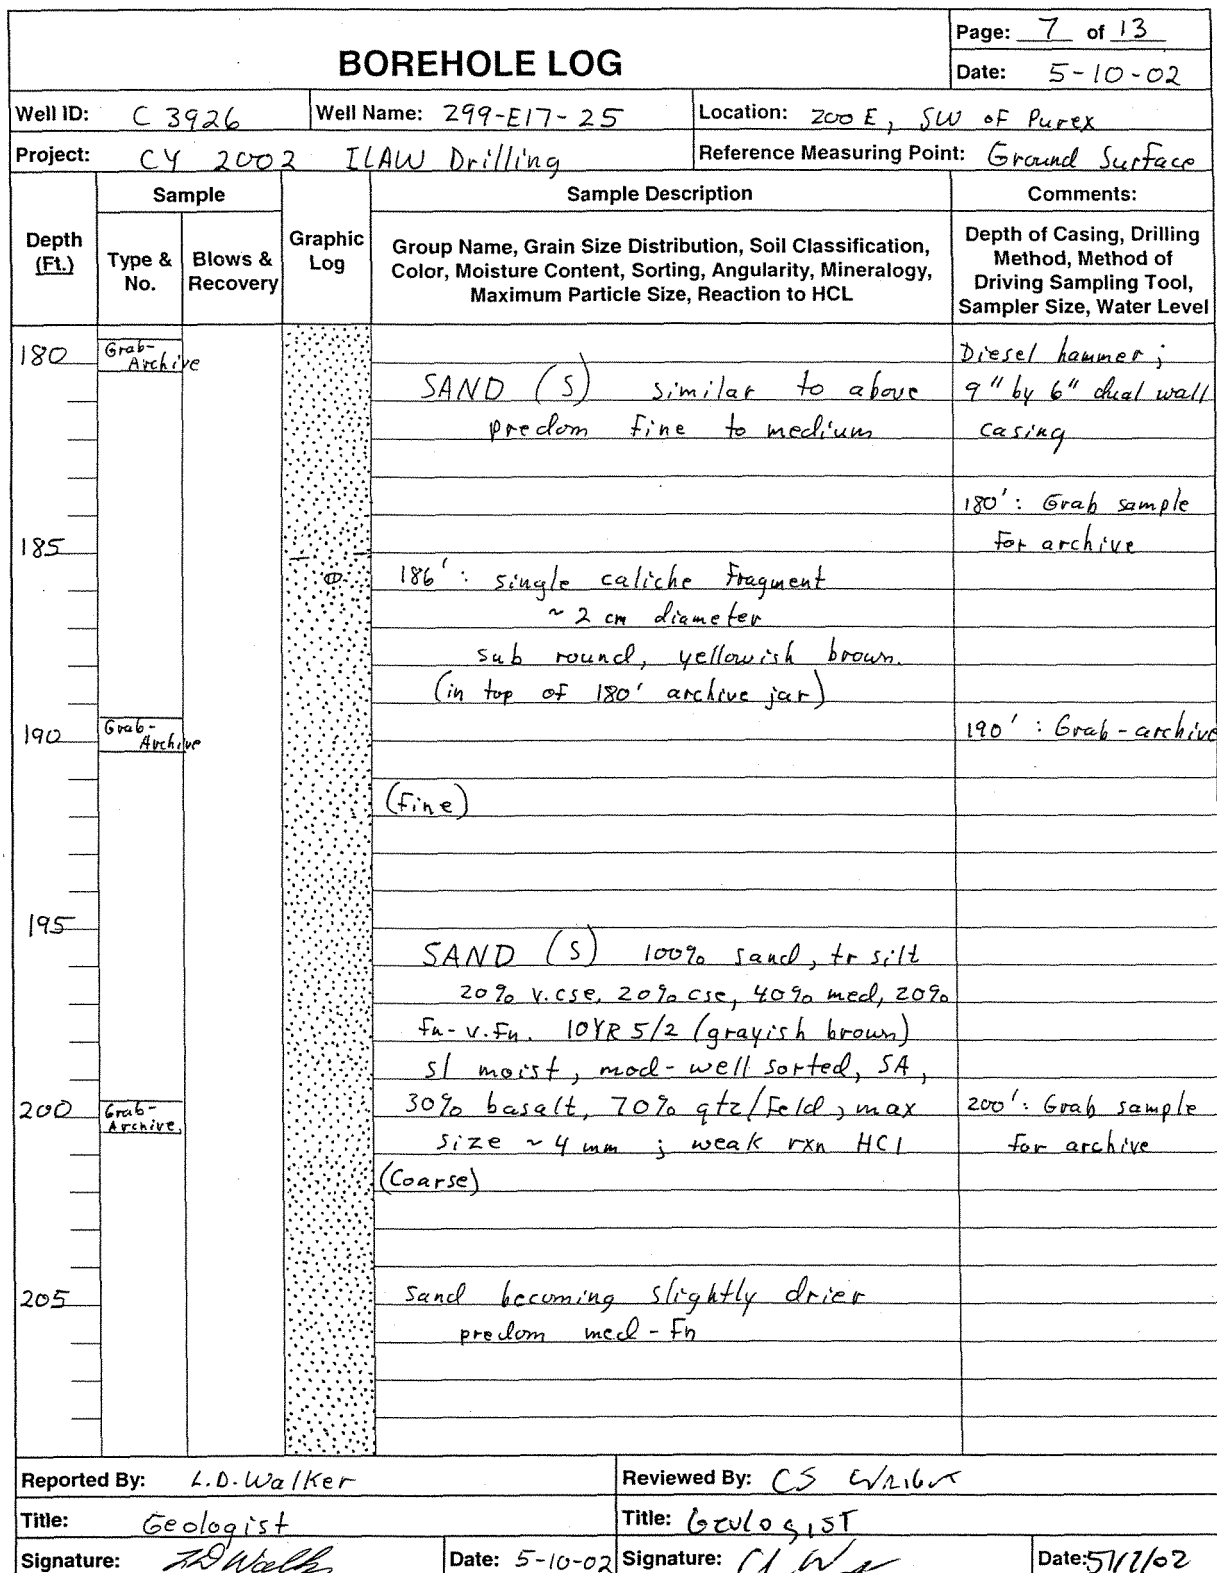 BOREHOLE LOG
Page: 7 of 13
Date: 5-10-02
Well ID: C 3926
Well Name: 299-E17-25
Location: 200 E, SW of Purex
Project: CY 2002 ILAW Drilling
Reference Measuring Point: Ground Surface
Depth (Ft.)
Sample
Type & No.
Blows & Recovery
Graphic Log
Sample Description
Group Name, Grain Size Distribution, Soil Classification,
Color, Moisture Content, Sorting, Angularity, Mineralogy,
Maximum Particle Size, Reaction to HCL
Comments:
Depth of Casing, Drilling
Method, Method of
Driving Sampling Tool,
Sampler Size, Water Level
180 Grab-Archive
Diesel hammer;
SAND (S) similar to above
9" by 6" dual wall
predom fine to medium
casing
180': Grab sample
185
for archive
186': single caliche fragment
~ 2 cm diameter
sub round, yellowish brown.
(in top of 180' archive jar)
190 Grab-Archive
190': Grab-archive
(fine)
195
SAND (S) 100% sand, tr silt
20% v.cse, 20% cse, 40% med, 20%
fn-v.fn. 10YR 5/2 (grayish brown)
sl moist, mod-well sorted, SA,
200 Grab-Archive.
30% basalt, 70% qtz/feld, max
200': Grab sample
size ~ 4 mm ; weak rxn HCl
for archive
(Coarse)
205
Sand becoming slightly drier
predom med-fn
Reported By: L.D. Walker
Reviewed By: CS
Title: Geologist
Title: Geologist
Signature: LD Walker
Date: 5-10-02
Signature:
Date: